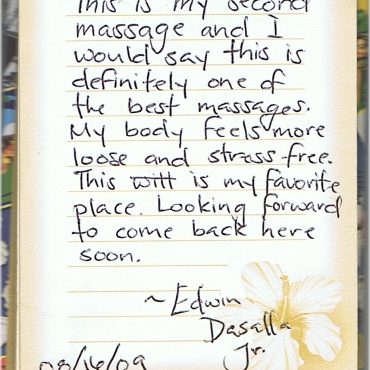 This is my second
massage and I
would say this is
definitely one of
the best massages.
My body feels more
loose and stress-free.
This will is my favorite
place. Looking forward
to come back here
soon.
~ Edwin
Dasalla
Jr.
08/16/09